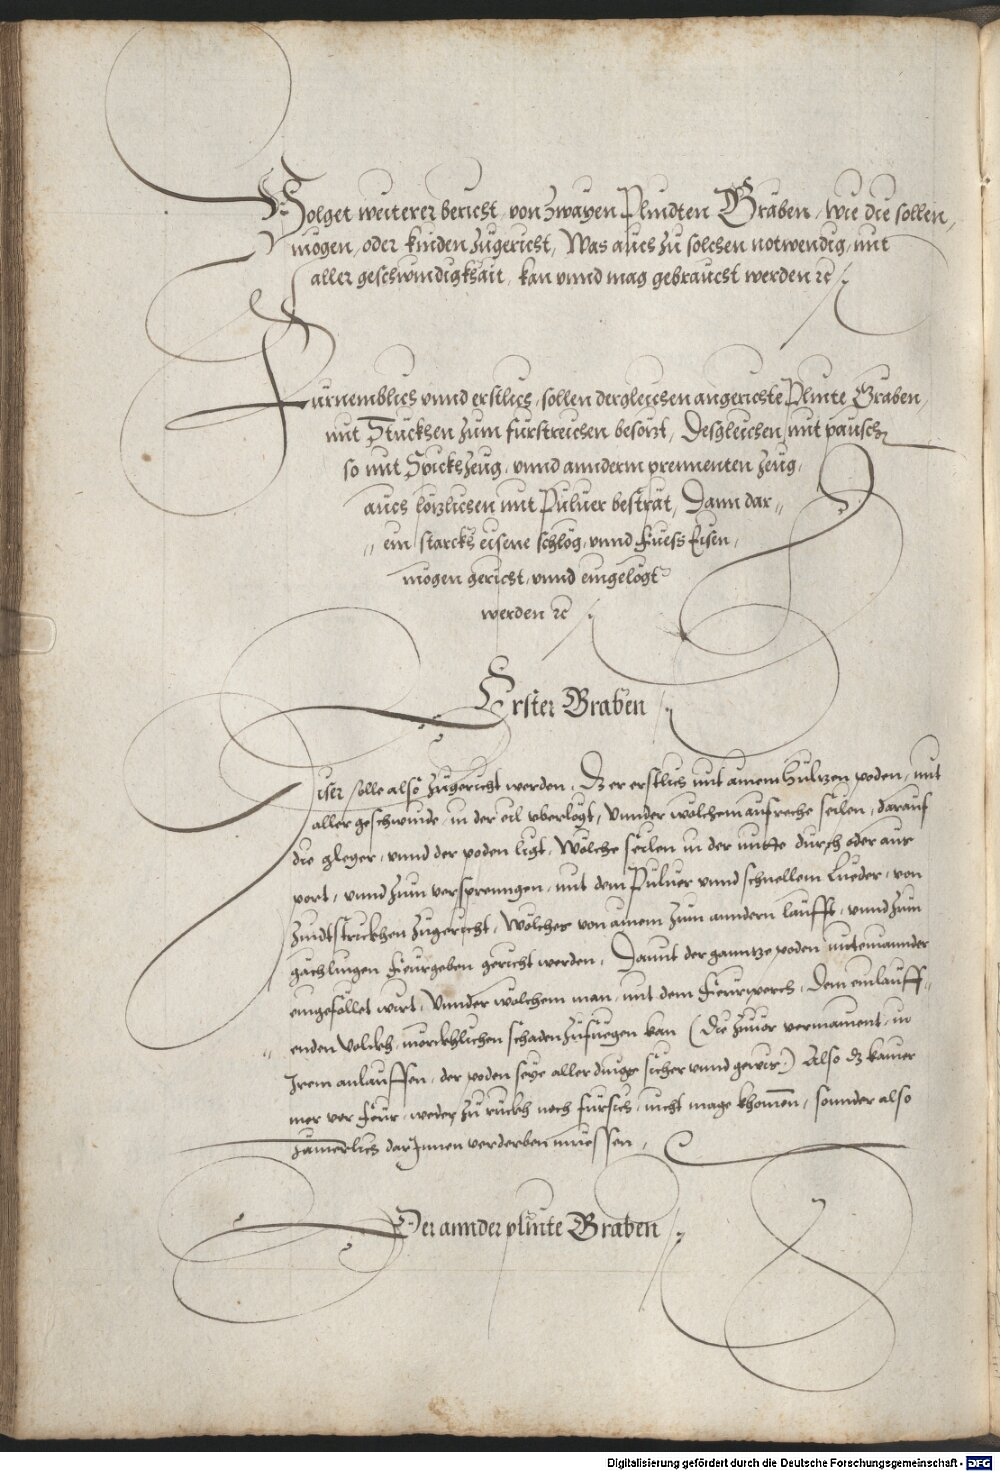 Volget weiterer bericht, von zwayen Plindten Graben, wie die sollen,
mögen, oder künden zugericht, Was auch zu solchen notwendig, mit
aller geschwindigkhait, kan vnnd mag gebraucht werden ꝛc
Fürnemblich vnnd erstlich, sollen dergleichen angerichte Plinte Graben,
mit Stuckhen zum fürstreichen besözt, Desgleichen, mit pausch
so mit Spickhzeug, vnnd annderm prennenten zeug,
auch lözlichen mit Puluer besträt, Dann dar〃
〃ein starckh eisene schlög, vnnd Fuess Eisen,
mögen gericht, vnnd eingelögt
werden ꝛc
Erster Graben
Diser solle also zugericht werden, Dz er erstlich mit ainem hültzen poden, mit
aller geschwinde, in der eil vberlögt, Vnnder wölchem aufreche seilen, darauf
die gleger, vnnd der poden ligt, Wölche seilen in der mitte durch oder aus
port, vnnd zum versprenngen, mit dem Puluer vnnd schnellem Lueder, von
Zündtstrickhen zugericht, Wölcher von ainem zum anndern laufft, vnnd zum
gächlingen Feurgeben gericht werden, Damit der ganntze poden miteinannder
eingeföllet wirt, Vnnder wölchem man, mit dem Feurwerch, Dem einlauff〃
〃enden Volckh, mörckhlichen schaden zufuegen kan (Die zuuor vermainent, in
Irem anlauffen, der poden seye aller dinge sicher vnnd gewis) Also dz kainer
mer vor Feur, weder zu ruckh noch fürsich, nicht mage khomen, sonnder also
Jamerlich dar Innen verderben müessen,
Der annder plinte Graben
Digitalisierung gefördert durch die Deutsche Forschungsgemeinschaft - DFG